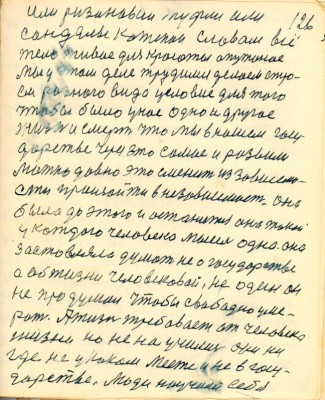 126
или резиновои туфли или
сандалы Кожении Словам всё
тело живое для красоты
мы у том деле трудимся делаем
разного вида условие для того
чтобы было у нас одно и другое
жизн и смерт что мы в нашем госу-
дарстве чрез это самое и
можно давно это сменит из зависимо-
сти произойти в независимост. Она
была до этого и останется она такой
у каждого человека мысл одна. она
заставляла думат не о государстве
а об жизни человековай, не один он
не продумал чтобы свободно уме-
рат. А жизн требовает от человека
жизни но не на училис они ни
где не у коком месте и не в госу-
дарстве. Люди научили себя